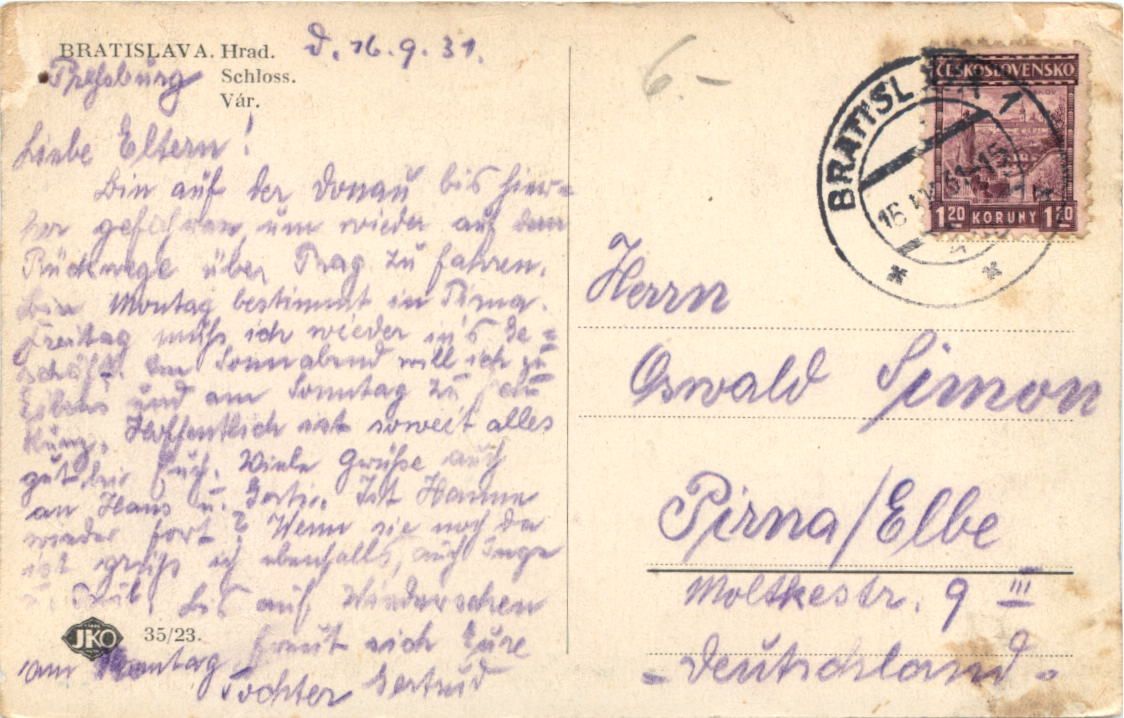 BRATISLAVA. Hrad.
Schloss.
Vár.
d. 16.9.31.
Preßburg
Liebe Eltern!
Bin auf der Donau bis hier=
her gefahren, um wieder auf dem
Rückwege über Prag zu fahren.
Bin Montag bestimmt in Pirna.
Freitag muß ich wieder in's Ge=
schäft. Am Sonnabend will ich zu
und am Sonntag zu
Hoffentlich ist soweit alles
gut bei Euch. Viele Grüße auch
an Hans u. Ist Hanne
wieder fort? Wenn sie noch da
ist grüß ich ebenfalls, auch Inge
u. Bis auf Wiedersehen
am Montag freut sich Eure
Tochter Gertrud
JKO
35/23.
6.-
ČESKOSLOVENSKO
1.20 KORUNY 1.20
BRATISLAVA 1
Herrn
Oswald Simon
Pirna/Elbe
Moltkestr. 9 III
- Deutschland -